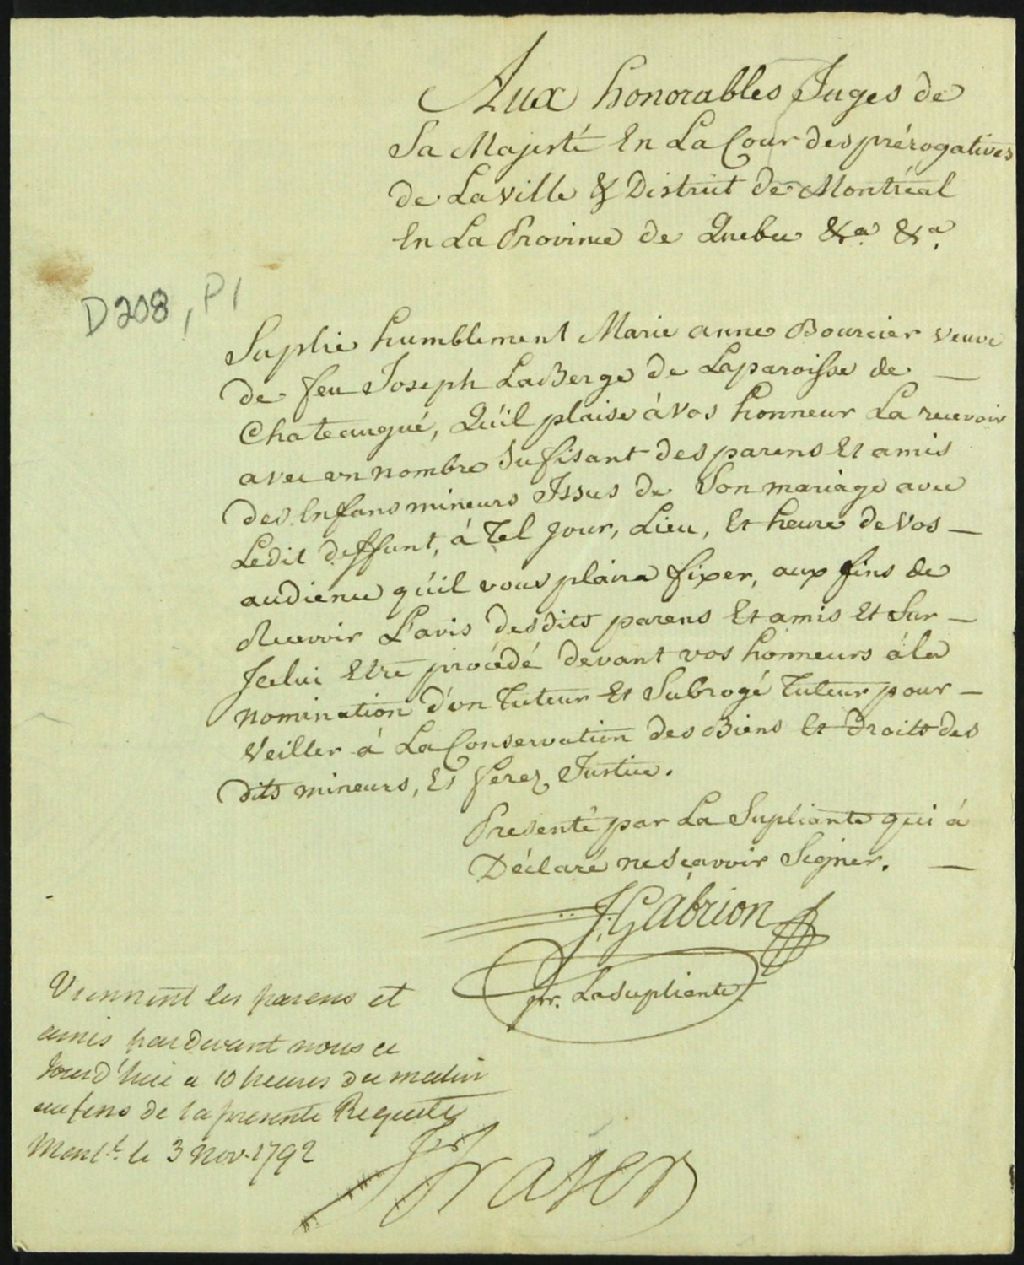 Aux honorables Juges de
Sa Majesté En La Cour des prérogatives
de La ville & District de Montréal
En La Province de Quebec &ca. &ca.
D208, P1
Suplie humblement Marie anne Bourcier veuve
de feu Joseph LaBerge de Laparoisse de —
Chateaugué, Qu'il plaise à Vos honneur La recevoir
avec un nombre Sufisant des parens Et amis
des Enfans mineurs Issus de Son mariage avec
Ledit deffunt, à Tel Jour, Lieu, Et heure de Vos —
audience qu'il vous plaira fixer, aux fins de
Recevoir L'avis desdits parens Et amis Et Sur —
Jcelui Etre procédé devant vos honneurs à la
nomination d'un Tuteur Et Subrogé Tuteur pour —
Veiller à La Conservation des Biens Et Droits des
dits mineurs, Et ferez Justice.
Presenté par La Supliante qui à
Déclaré ne sçavoir Signer. —
J: Gabrion
pr. La supliente
Viennent les parens et
amis par devant nous ce
Jourd'hui a 10 heures du matin
aux fins de la presente Requete
Montl. le 3 Nov. 1792
Fraser